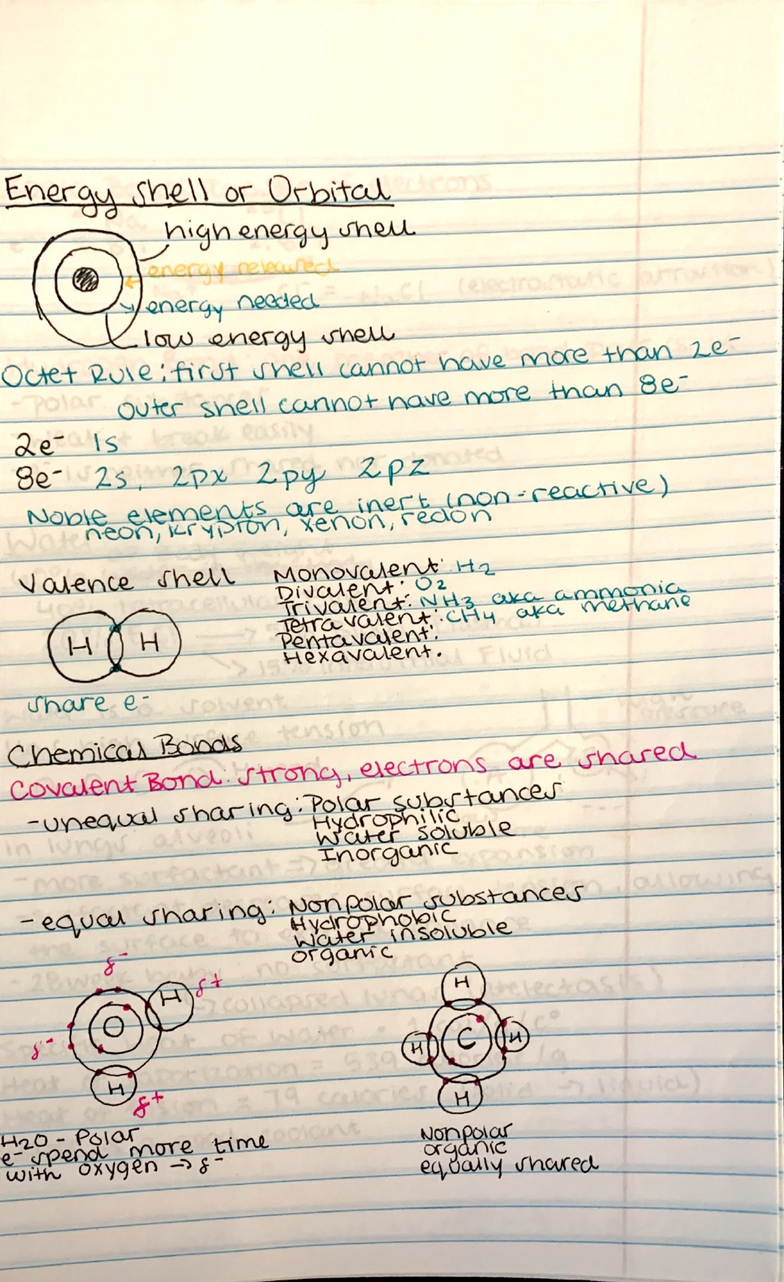 Energy shell or Orbital
high energy shell
energy released
energy needed
low energy shell
Octet Rule: first shell cannot have more than 2e-
outer shell cannot have more than 8e-
2e- 1s
8e- 2s, 2px 2py 2pz
Noble elements are inert (non-reactive)
neon, krypton, xenon, redon
Valence shell
Monovalent: H2
Divalent: O2
Trivalent: NH3 aka ammonia
Tetravalent: CH4 aka methane
Pentavalent:
Hexavalent.
H H
share e-
Chemical Bonds
Covalent Bond: strong, electrons are shared
-unequal sharing: Polar substances
Hydrophilic
Water soluble
Inorganic
-equal sharing: Nonpolar substances
Hydrophobic
Water insoluble
organic
δ-
H δ+
O
δ-
H
δ+
H
H C H
H
H2O - Polar
e- spend more time
with oxygen → δ-
Nonpolar
organic
equally shared